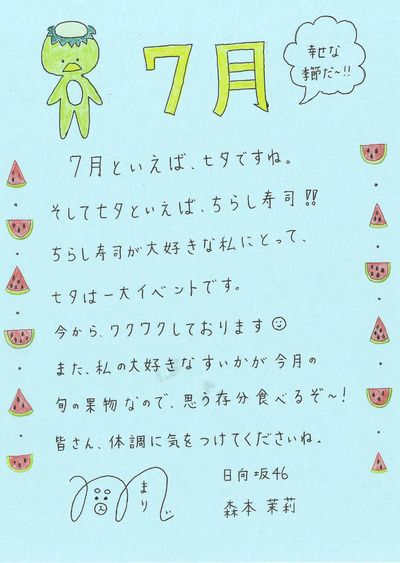 7月
幸せな
季節だ〜!!
7月といえば、七夕ですね。
そして七夕といえば、ちらし寿司!!
ちらし寿司が大好きな私にとって、
七夕は一大イベントです。
今から、ワクワクしております☺
また、私の大好きなすいかが今月の
旬の果物なので、思う存分食べるぞ〜!
皆さん、体調に気をつけてくださいね。
まりぃ
日向坂46
森本茉莉